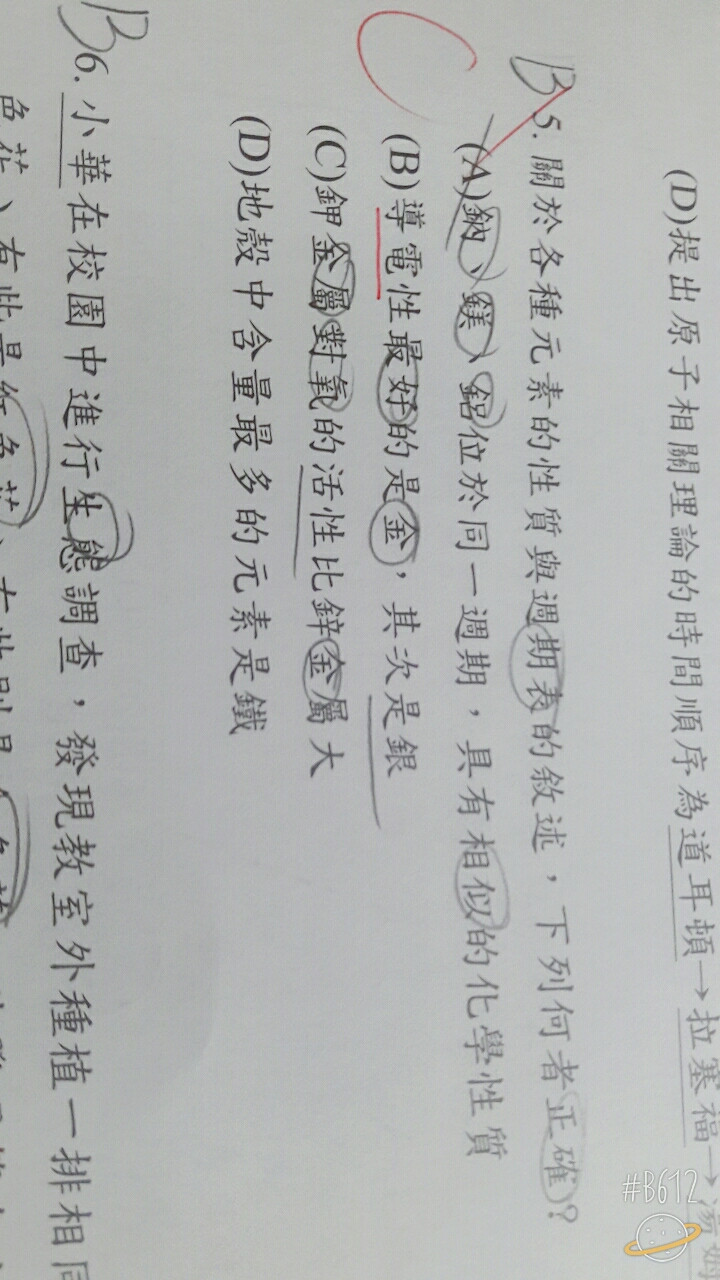 (D)提出原子相關理論的時間順序為道耳頓→拉塞福→湯姆
B 5. 關於各種元素的性質與週期表的敘述，下列何者正確?
(A)鈉、鎂、鋁位於同一週期，具有相似的化學性質
(B)導電性最好的是金，其次是銀
(C)鉀金屬對氧的活性比鋅金屬大
(D)地殼中含量最多的元素是鐵
B 6. 小華在校園中進行生態調查，發現教室外種植一排相同
#B612